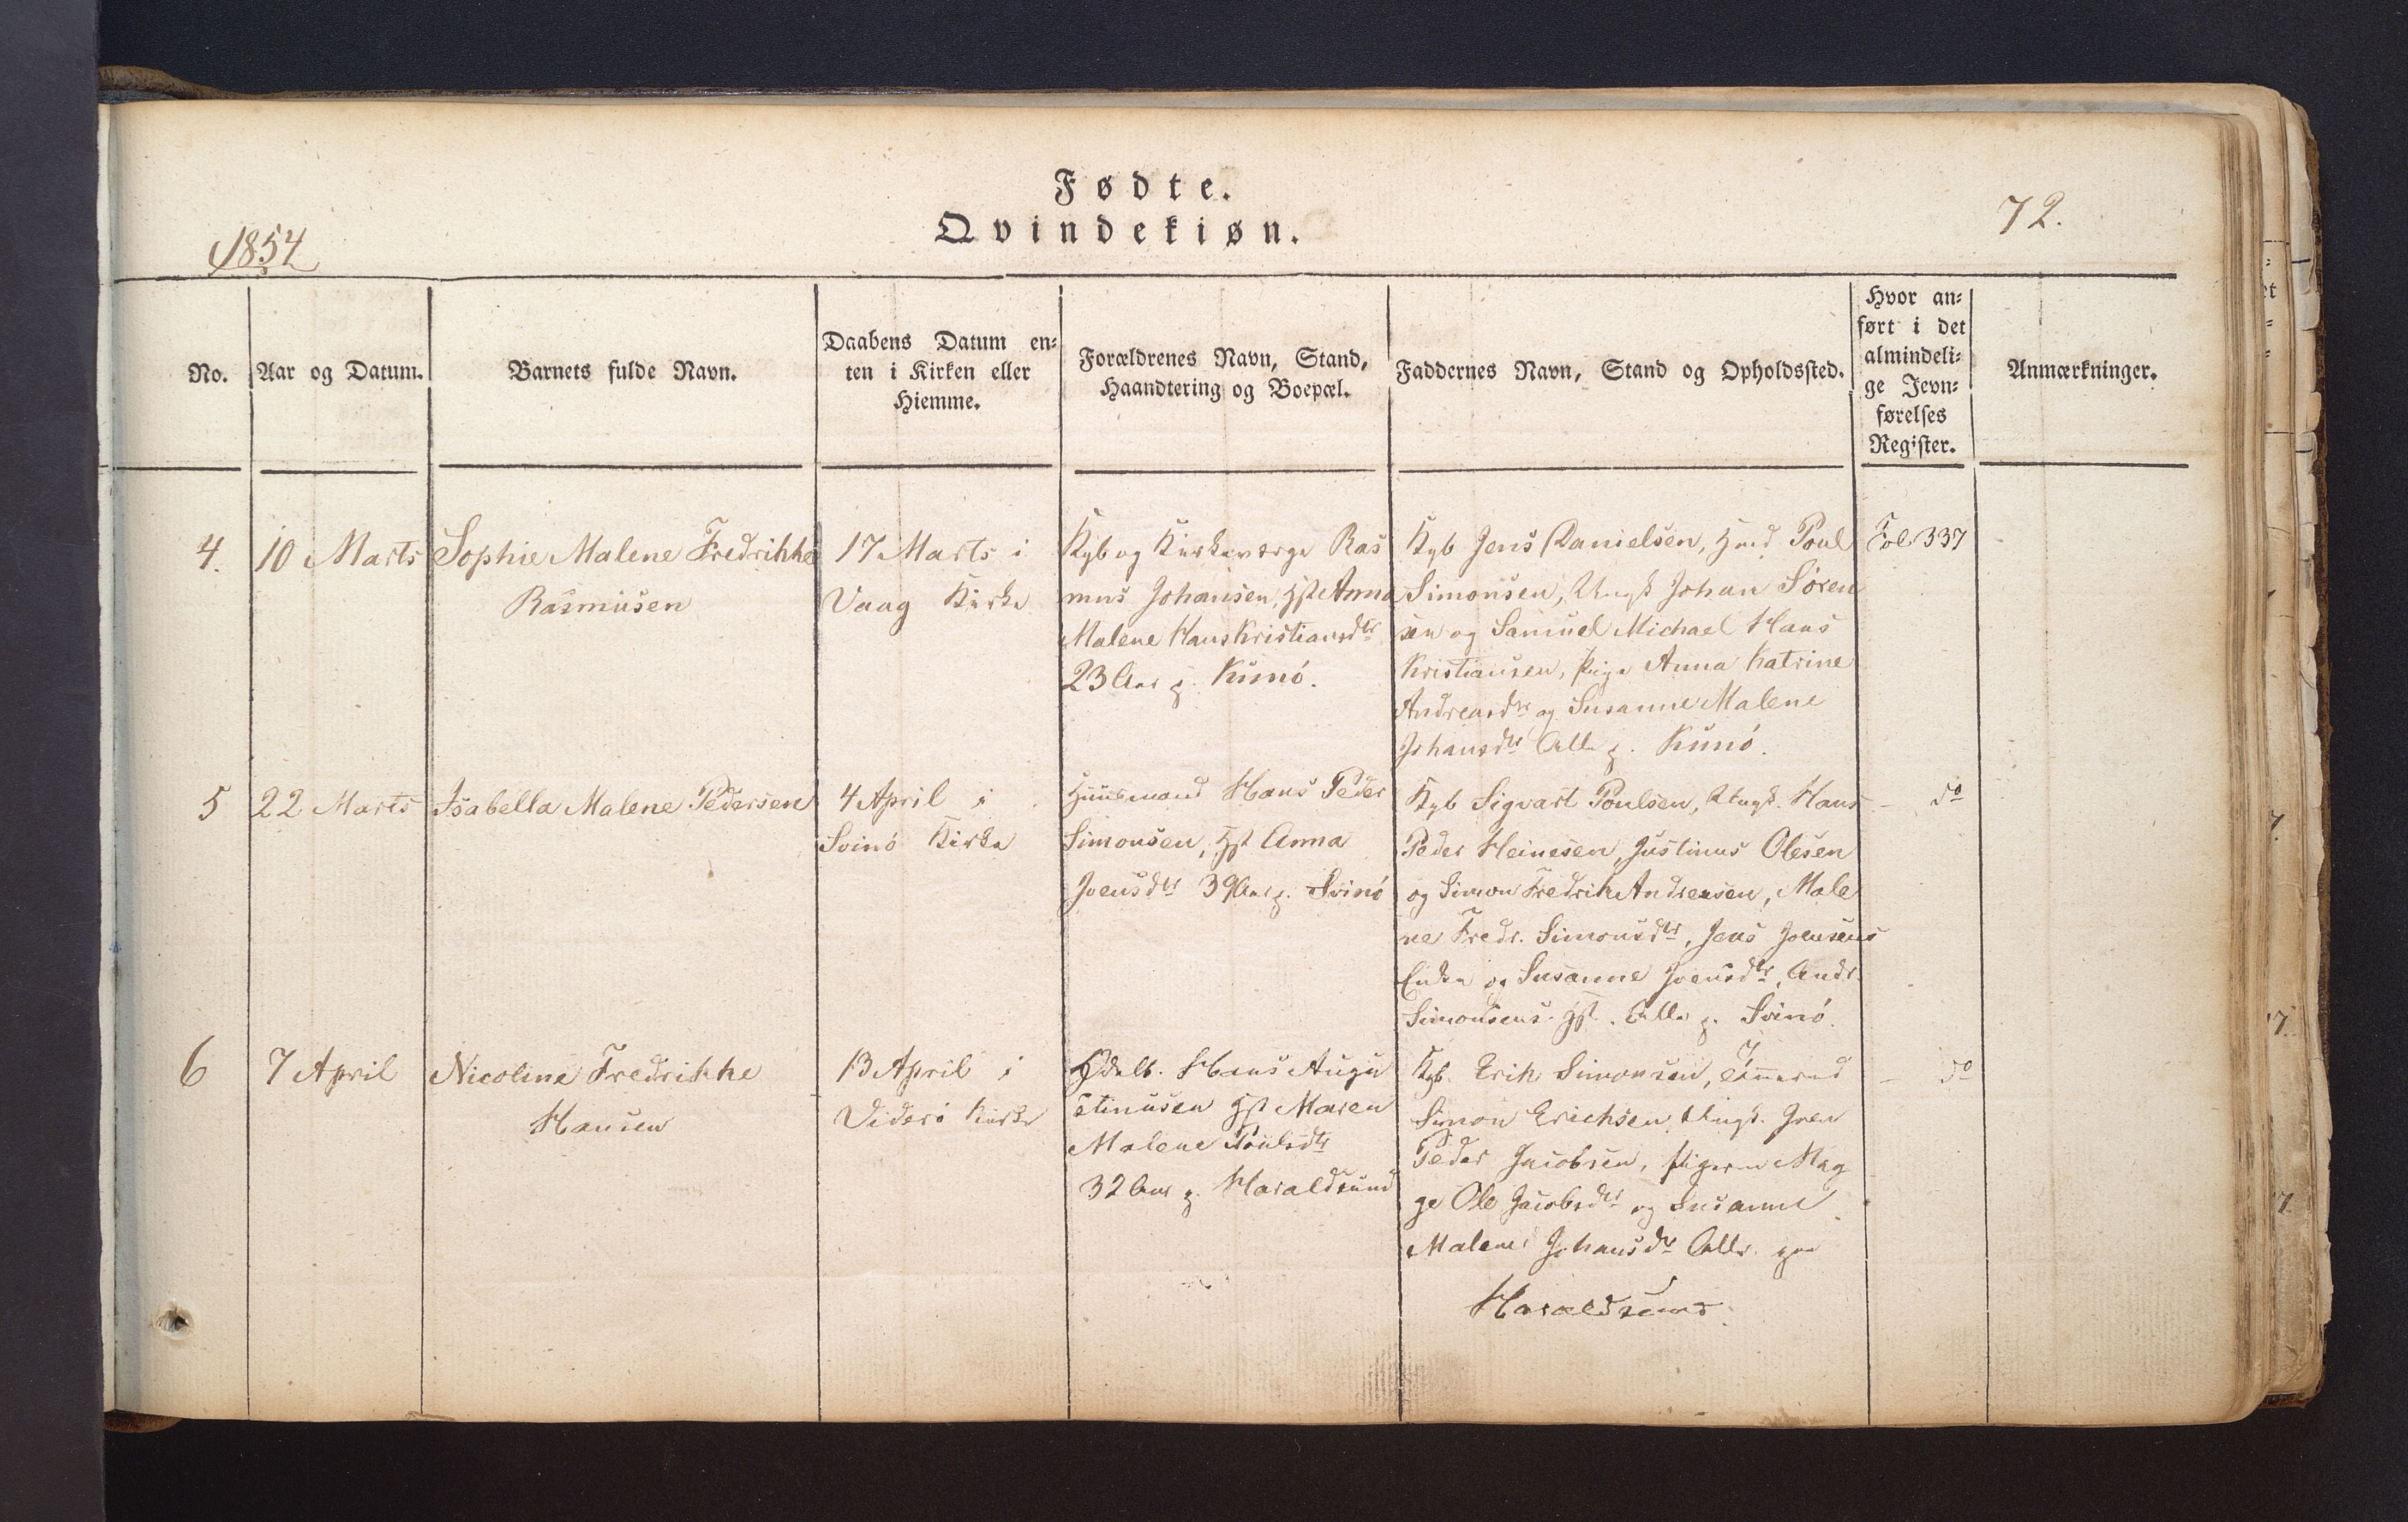 Fødte.
Qvindekiøn.
1854
72.
No.
Aar og Datum.
Barnets fulde Navn.
Daabens Datum en-
ten i Kirken eller
Hiemme.
Forældrenes Navn, Stand,
Haandtering og Boepæl.
Faddernes Navn, Stand og Opholdssted.
Hvor an-
ført i det
almindeli-
ge Jevn-
førelses
Register.
Anmærkninger.
4.
10 Marts
Sophie Malene Fredrikke
Rasmusen
17 Marts i
Vaag Kirke
Kgb og Kirkeværge Ras
mus Johansen, Hst Anna
Malene Hanskristiansdtr
23 Aar p. Kunö.
Kgb Jens Danielsen, Hmd Poul
Simonsen, Ungk Johan Sören
sen og Samuel Michael Hans
Kristiansen, Pige Anna Katrine
Andreasdtr og Susanne Malene
Johansdtr Alle p. Kunö.
Fol 337
5
22 Marts
Isabella Malene Pedersen
4 April i
Svinö Kirke
Huusmand Hans Peder
Simonsen, Hst Anna
Joensdtr 39 Aar p. Svinö
Kgb Sigvart Poulsen, Ungk. Hans
Peder Heinesen, Justinus Olesen
og Simon Fredrik Andreasen, Male
ne Fredr. Simonsdtr, Jens Joensens
Enke og Susanne Joensdtr, Andr.
Simonsens Hst. Alle p. Svinö.
- do
6
7 April
Nicoline Fredrikke
Hansen
13 April i
Viderö Kirke
Odelb. Hans Augu
stinusen Hst Maren
Malene Poulsdtr
32 Aar p. Haraldsund
Kgb. Erik Simonsen,
Simon Erichsen, Ungk. Joen
Peder Jacobsen, Pigerne Mag
ge Ole Jacobsdtr og Susanne
Malene Johansdtr Alle paa
Haraldsund.
- do